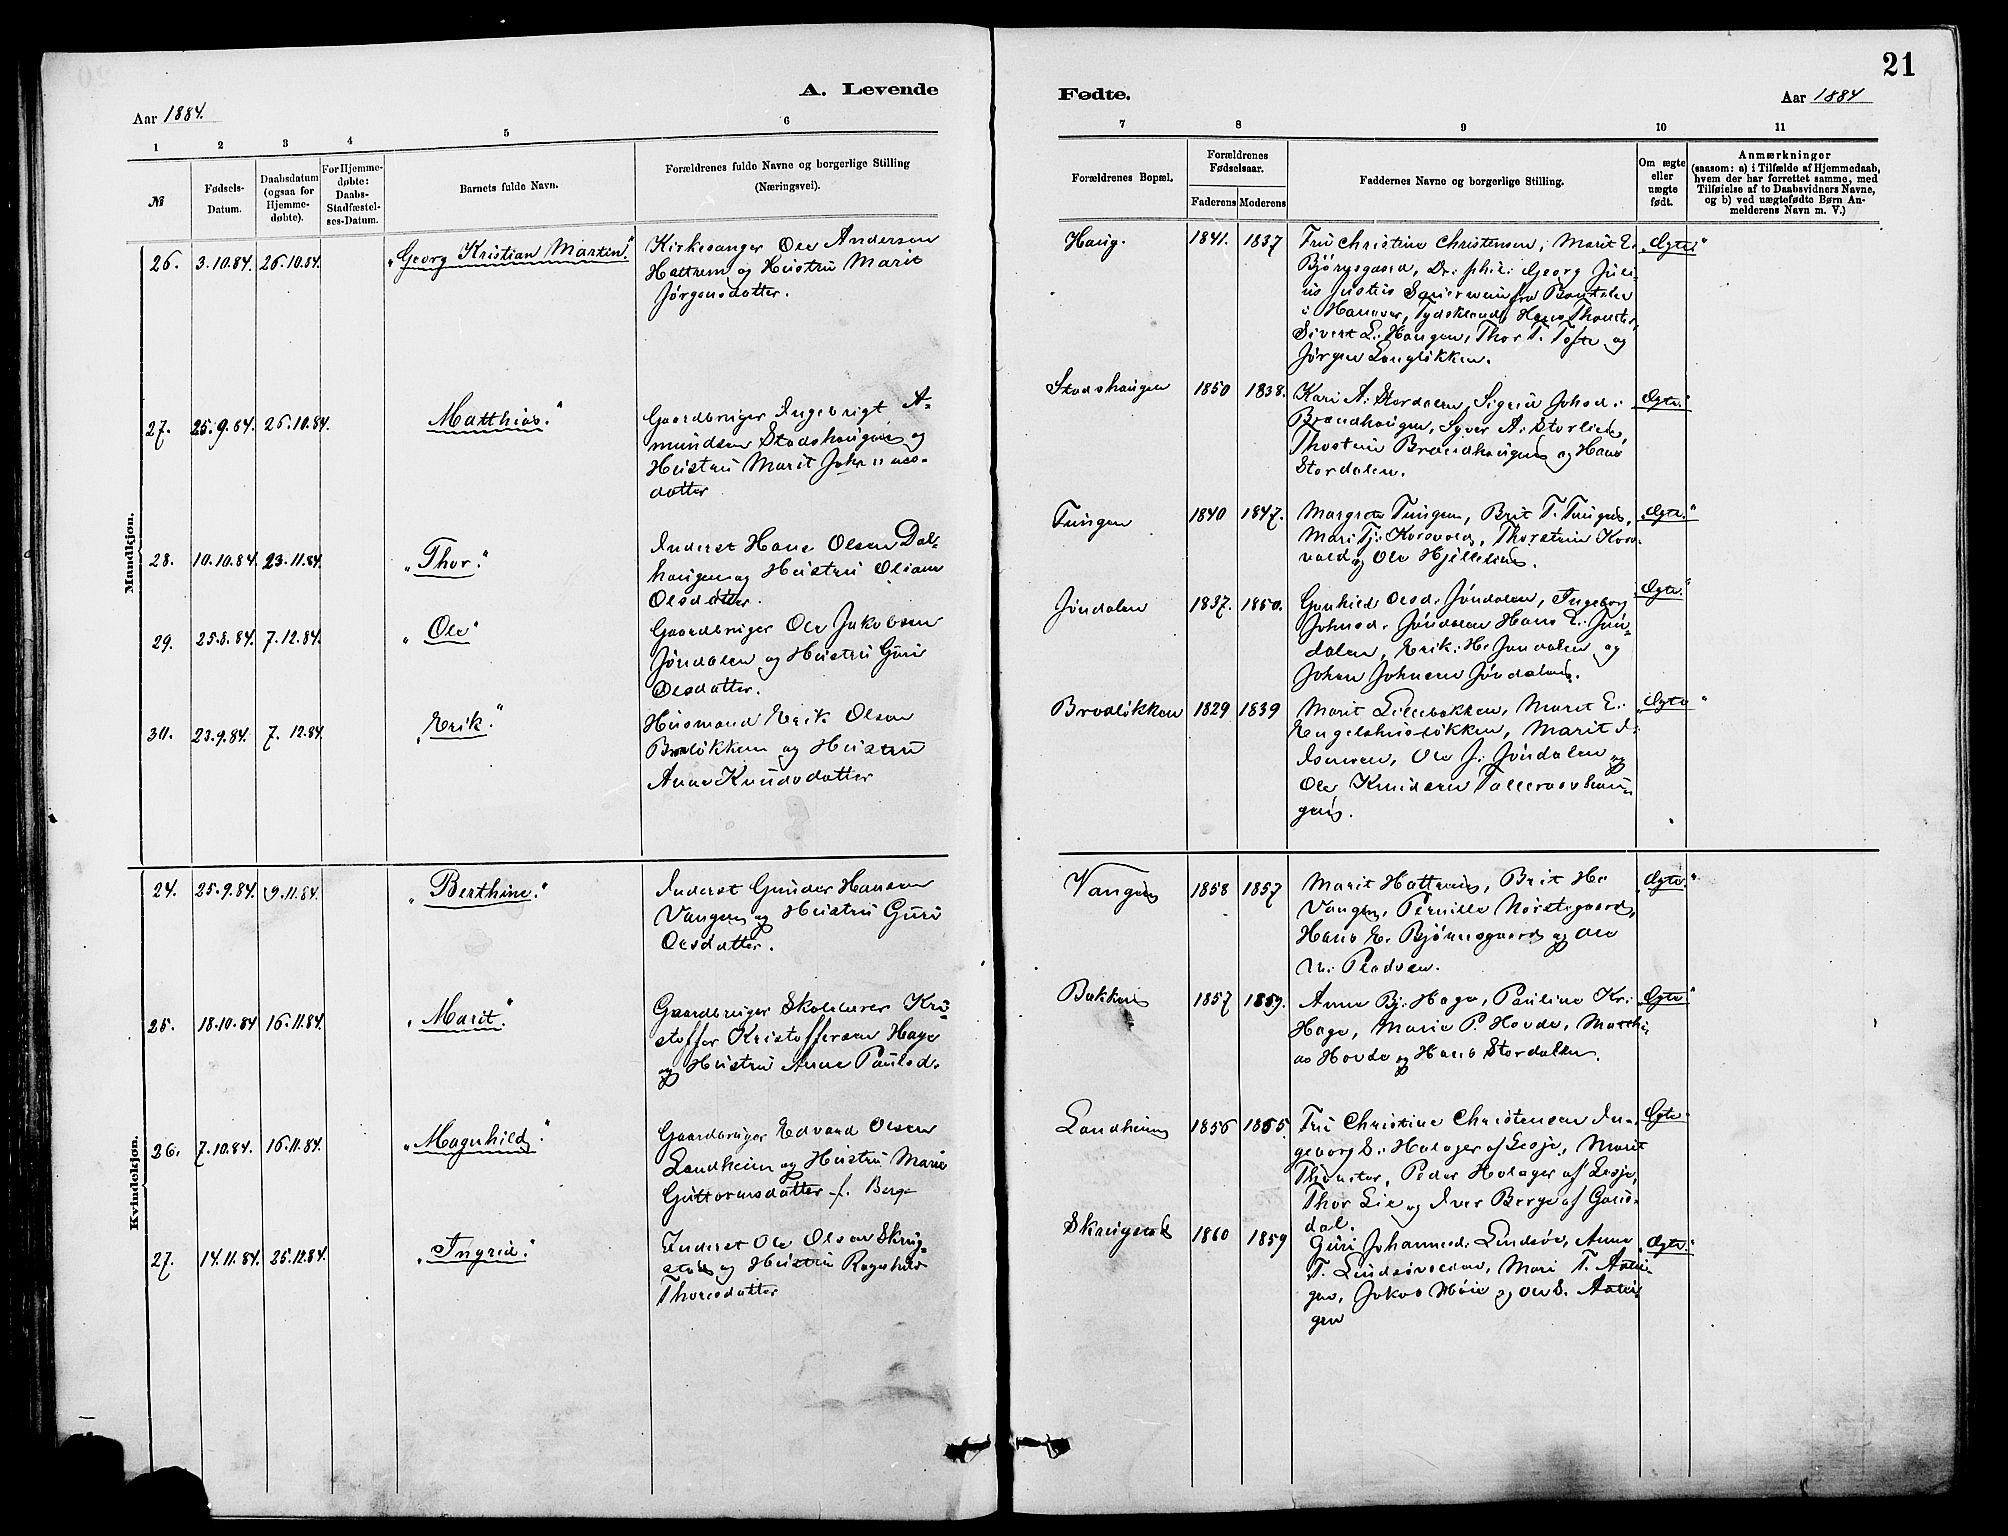 21
A. Levende
Fødte.
Aar 1884.
Aar 1884
1 2 3 4 5 6
7 8 9 10 11
№
Fødsels-
Datum.
Daabsdatum
(ogsaa for
Hjemme-
døbte).
For Hjemme-
døbte:
Daabs-
Stadfæstel-
ses-Datum.
Barnets fulde Navn.
Forældrenes fulde Navne og borgerlige Stilling
(Næringsvei).
Forældrenes Bopæl.
Forældrenes
Fødselsaar.
Faderens Moderens
Faddernes Navne og borgerlige Stilling.
Om ægte
eller
uægte
født.
Anmærkninger
(saasom: a) i Tilfælde af Hjemmedaab,
hvem der har forrettet samme, med
Tilføielse af to Daabsvidners Navne,
og b) ved uægtefødte Børn An-
melderens Navn m. V.)
Mandkjøn.
26. 3.10.84. 26.10.84.
„Georg Kristian Martin.“
Kirkesanger Ole Andersen
Hattrem og Hustru Marit
Jørgensdatter.
Haug.
1841. 1837
Fru Christine Christensen, Marit E.
Bjørnsgaard, Dr. phil. Georg Juli-
us Justus Sauerwein fra Banteln
i Hanover, Tydskland, Hans
Sivert L. Haugen, Thor T. Tofte og
Jørgen Langløkken.
„Ægte“
27. 25.9.84. 26.10.84.
„Matthias.“
Gaardbruger Ingebrigt A-
mundsen Stadshaugen og
Hustru Marit Johannes-
datter
Stadshaugen
1850 1838.
Kari A. Stordalen, Sigrid Johsd.
Brændhaugen, Syver A. Storlien,
Thostein Brændhaugen og Hans
Stordalen.
„Ægte.“
28. 10.10.84. 23.11.84.
„Thor.“
Inderst Hans Olsen Dal-
haugen og Hustru Oliane
Olsdatter.
Tungen
1840 1847.
Margrete Tungen, Brit T. Tungen,
Mari Tj. Korsvold, Thorstein Kors-
vold og Ole Hjellelien.
„Ægte.“
29. 25.8.84. 7.12.84.
„Ole“
Gaardbruger Ole Jakobsen
Jøndalen og Hustru Guri
Olsdatter.
Jøndalen
1837. 1850.
Gunhild Olsd. Jøndalen, Ingeborg
Johnsd. Jøndalen Hans E. Jøn-
dalen, Erik H. Jøndalen og
Johan Johnsen Jøndalen.
Ægte.“
30. 23.9.84. 7.12.84
„Erik.“
Husmand Erik Olsen
Brøløkken og Hustru
Anne Knudsdatter
Brøløkken
1829 1839
Marit Lillebakken, Marit E.
Engelshusløkken, Marit I.
Iversen, Ole J. Jøndalen og
Ole Knudsen
gen.
„Ægte“
Kvindekjøn.
24. 25.9.84. 9.11.84.
„Berthine.“
Inderst Gunder Hansen
Vangen og Hustru Guri
Olsdatter.
Vangen
1858 1857
Marit Hattrem, Brit H.
Vangen, Pernille Nørstegaard,
Hans E. Bjørnsgaard og Ole
N. Pladsen.
„Ægte.“
25. 18.10.84 16.11.84.
„Marit.“
Gaardbruger Skolelærer Kri-
stoffer Kristoffersen Hage
og Hustru Anne Paulsd.
Bakken
1857 1859.
Anne Bj. Hage, Pauline Kr.
Hage, Marie P. Hovde, Matthi-
as Hovde og Hans Stordalen.
„Ægte“
26. 7.10.84. 16.11.84.
„Magnhild.“
Gaardbruger Edvard Olsen
Landheim og Hustru Marie
Guttormsdatter f. Berge
Landheim
1856 1855.
Fru Christine Christensen In-
geborg S. Holager af Lesje, Marit
Peder Holager af Lesje,
Thor Lie og Iver Berge af Gaus-
dal.
Ægte
27. 14.11.84. 25.12.84.
„Ingrid.“
Inderst Ole Olsen Skrug-
stad og Hustru Ragnhild
Thoresdatter
Skrugstad
1860 1859
Guri Johannesd. Lindsøe, Anne
T. Mari T.
gen, Jakob Høie og Ole S.
gen
„Ægte.“